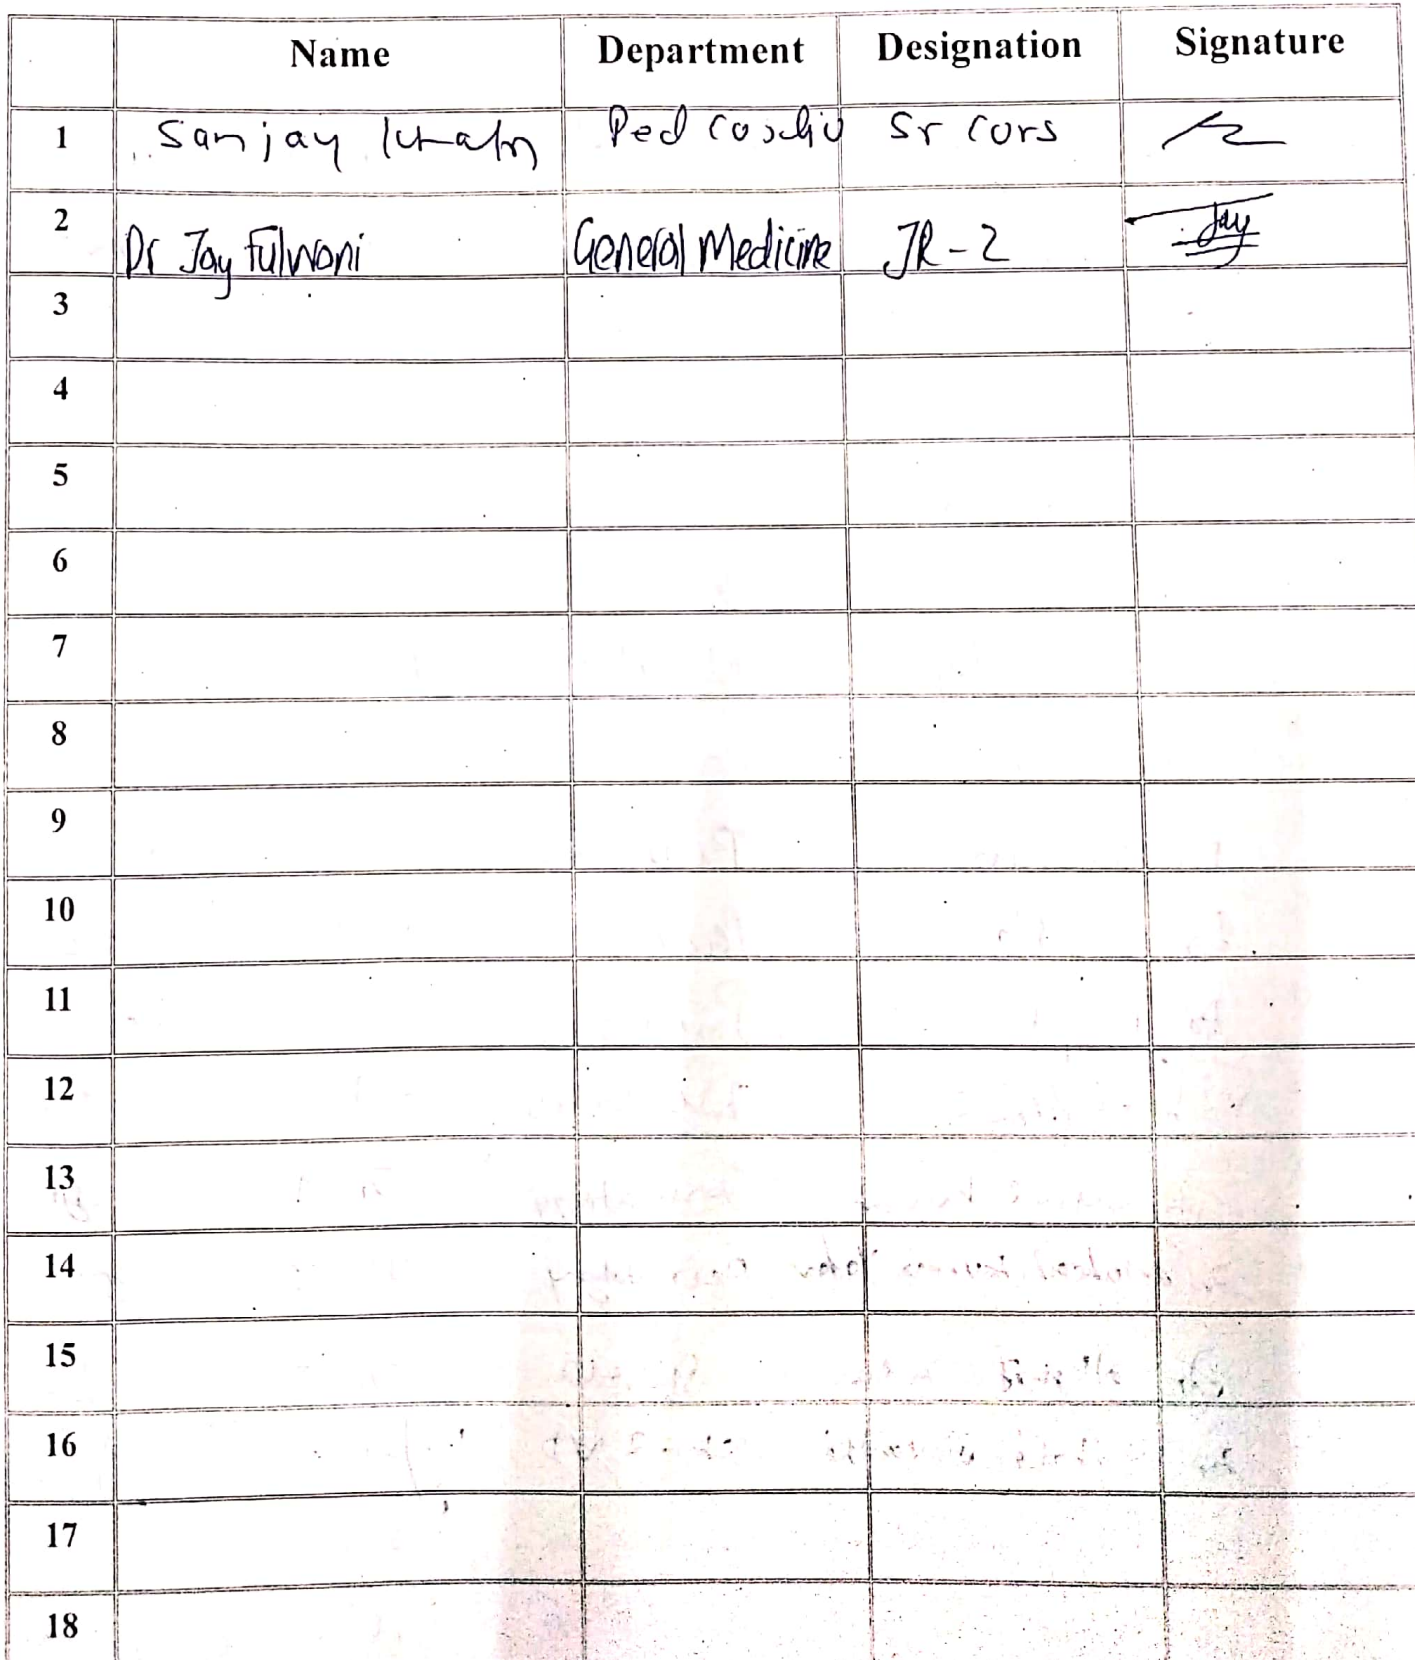 Name Department Designation Signature
1 Sanjay Ped Sr Cons
2 Dr Jay Fulwani General Medicine JR-2 Jay
3
4
5
6
7
8
9
10
11
12
13
14
15
16
17
18